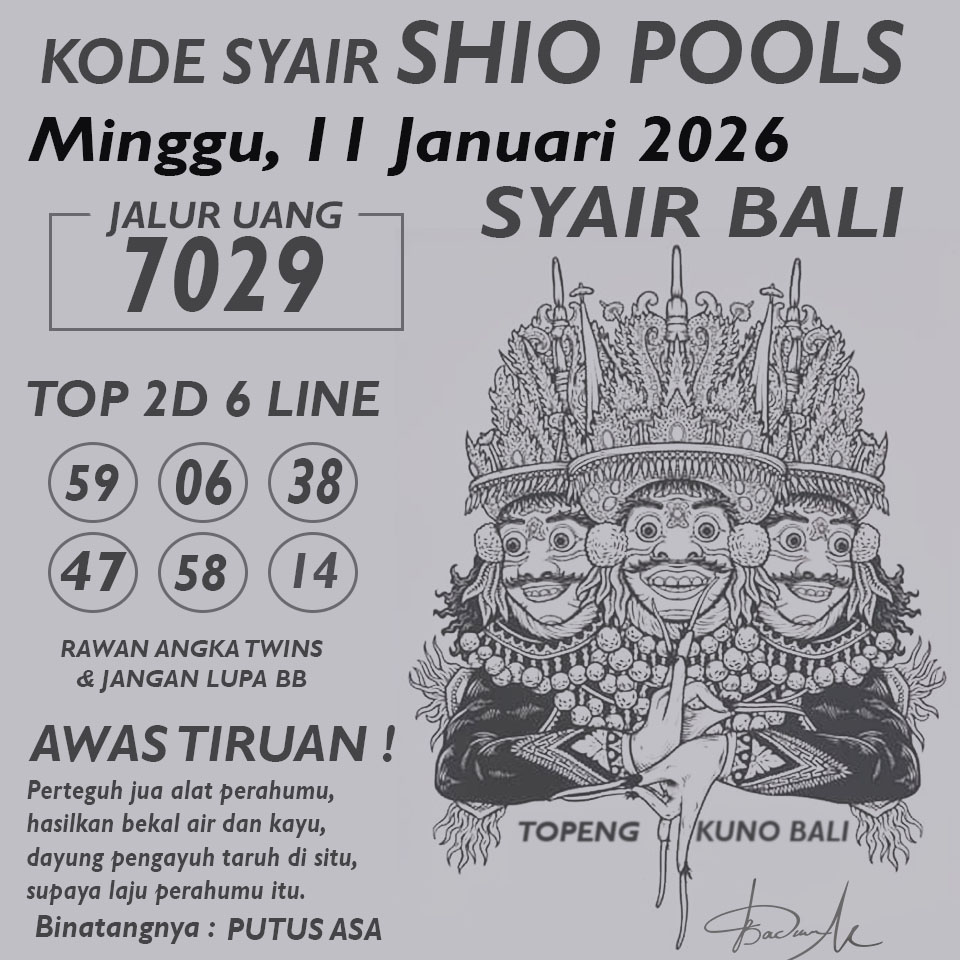 KODE SYAIR SHIO POOLS
Minggu, 11 Januari 2026
SYAIR BALI
JALUR UANG
7029
TOP 2D 6 LINE
59 06 38
47 58 14
RAWAN ANGKA TWINS
& JANGAN LUPA BB
AWAS TIRUAN !
Perteguh jua alat perahumu,
hasilkan bekal air dan kayu,
dayung pengayuh taruh di situ,
supaya laju perahumu itu.
Binatangnya : PUTUS ASA
TOPENG KUNO BALI